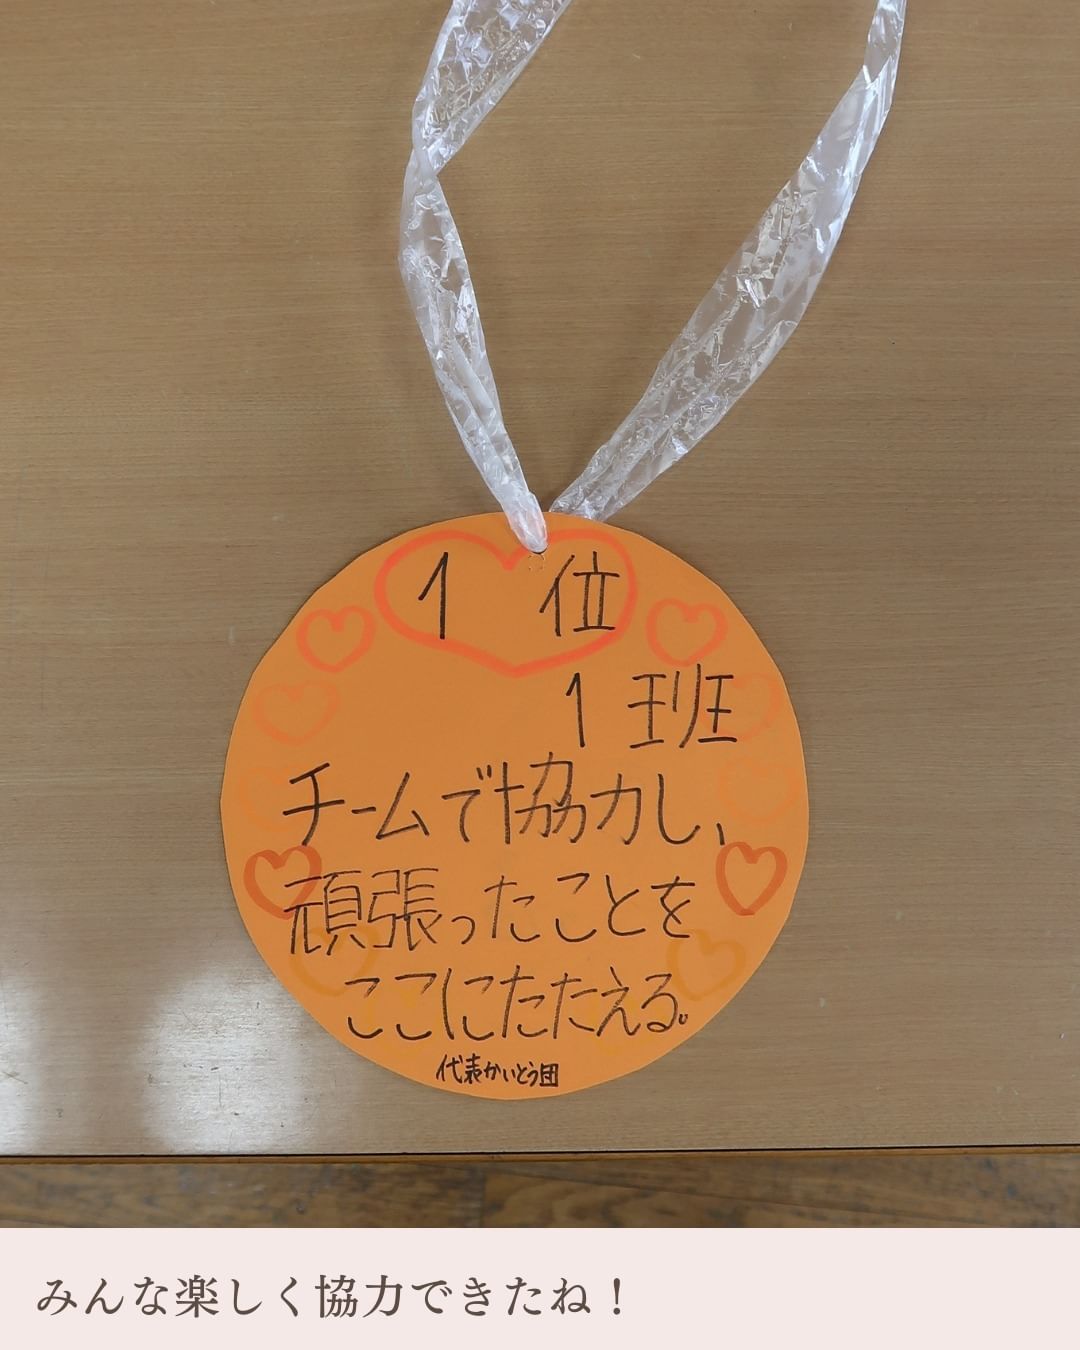 1 位
1 班
チームで協力し、
頑張ったことを
ここにたたえる。
代表かいとう団
みんな楽しく協力できたね！